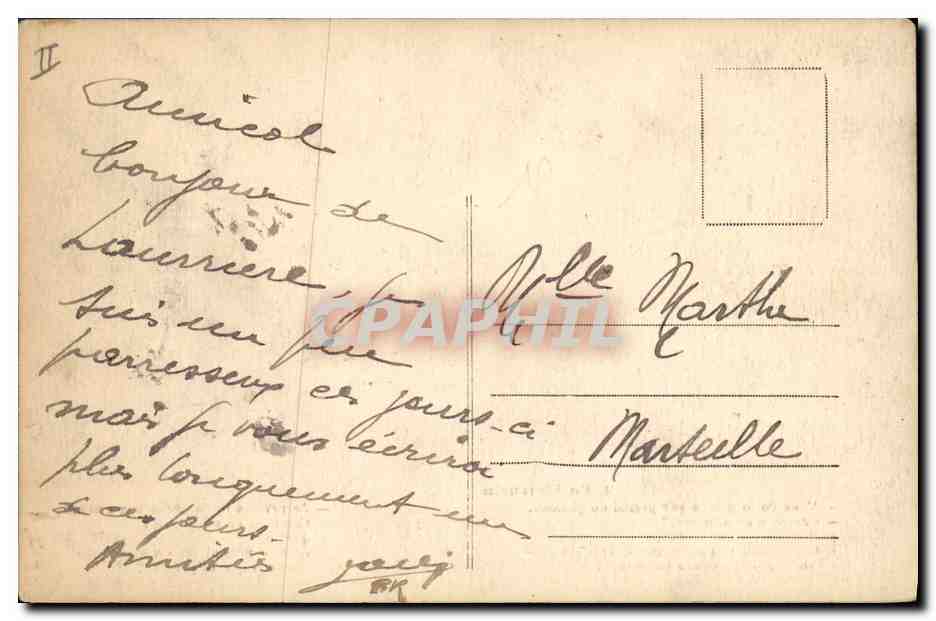 II
Amical
bonjour de
Lourriere, je
suis un peu
parresseux ces jours-ci
mais je vous écrirai
plus longuement un
de ces jours.
Amitiés
Mlle Marthe
Marseille
CPAPHIL